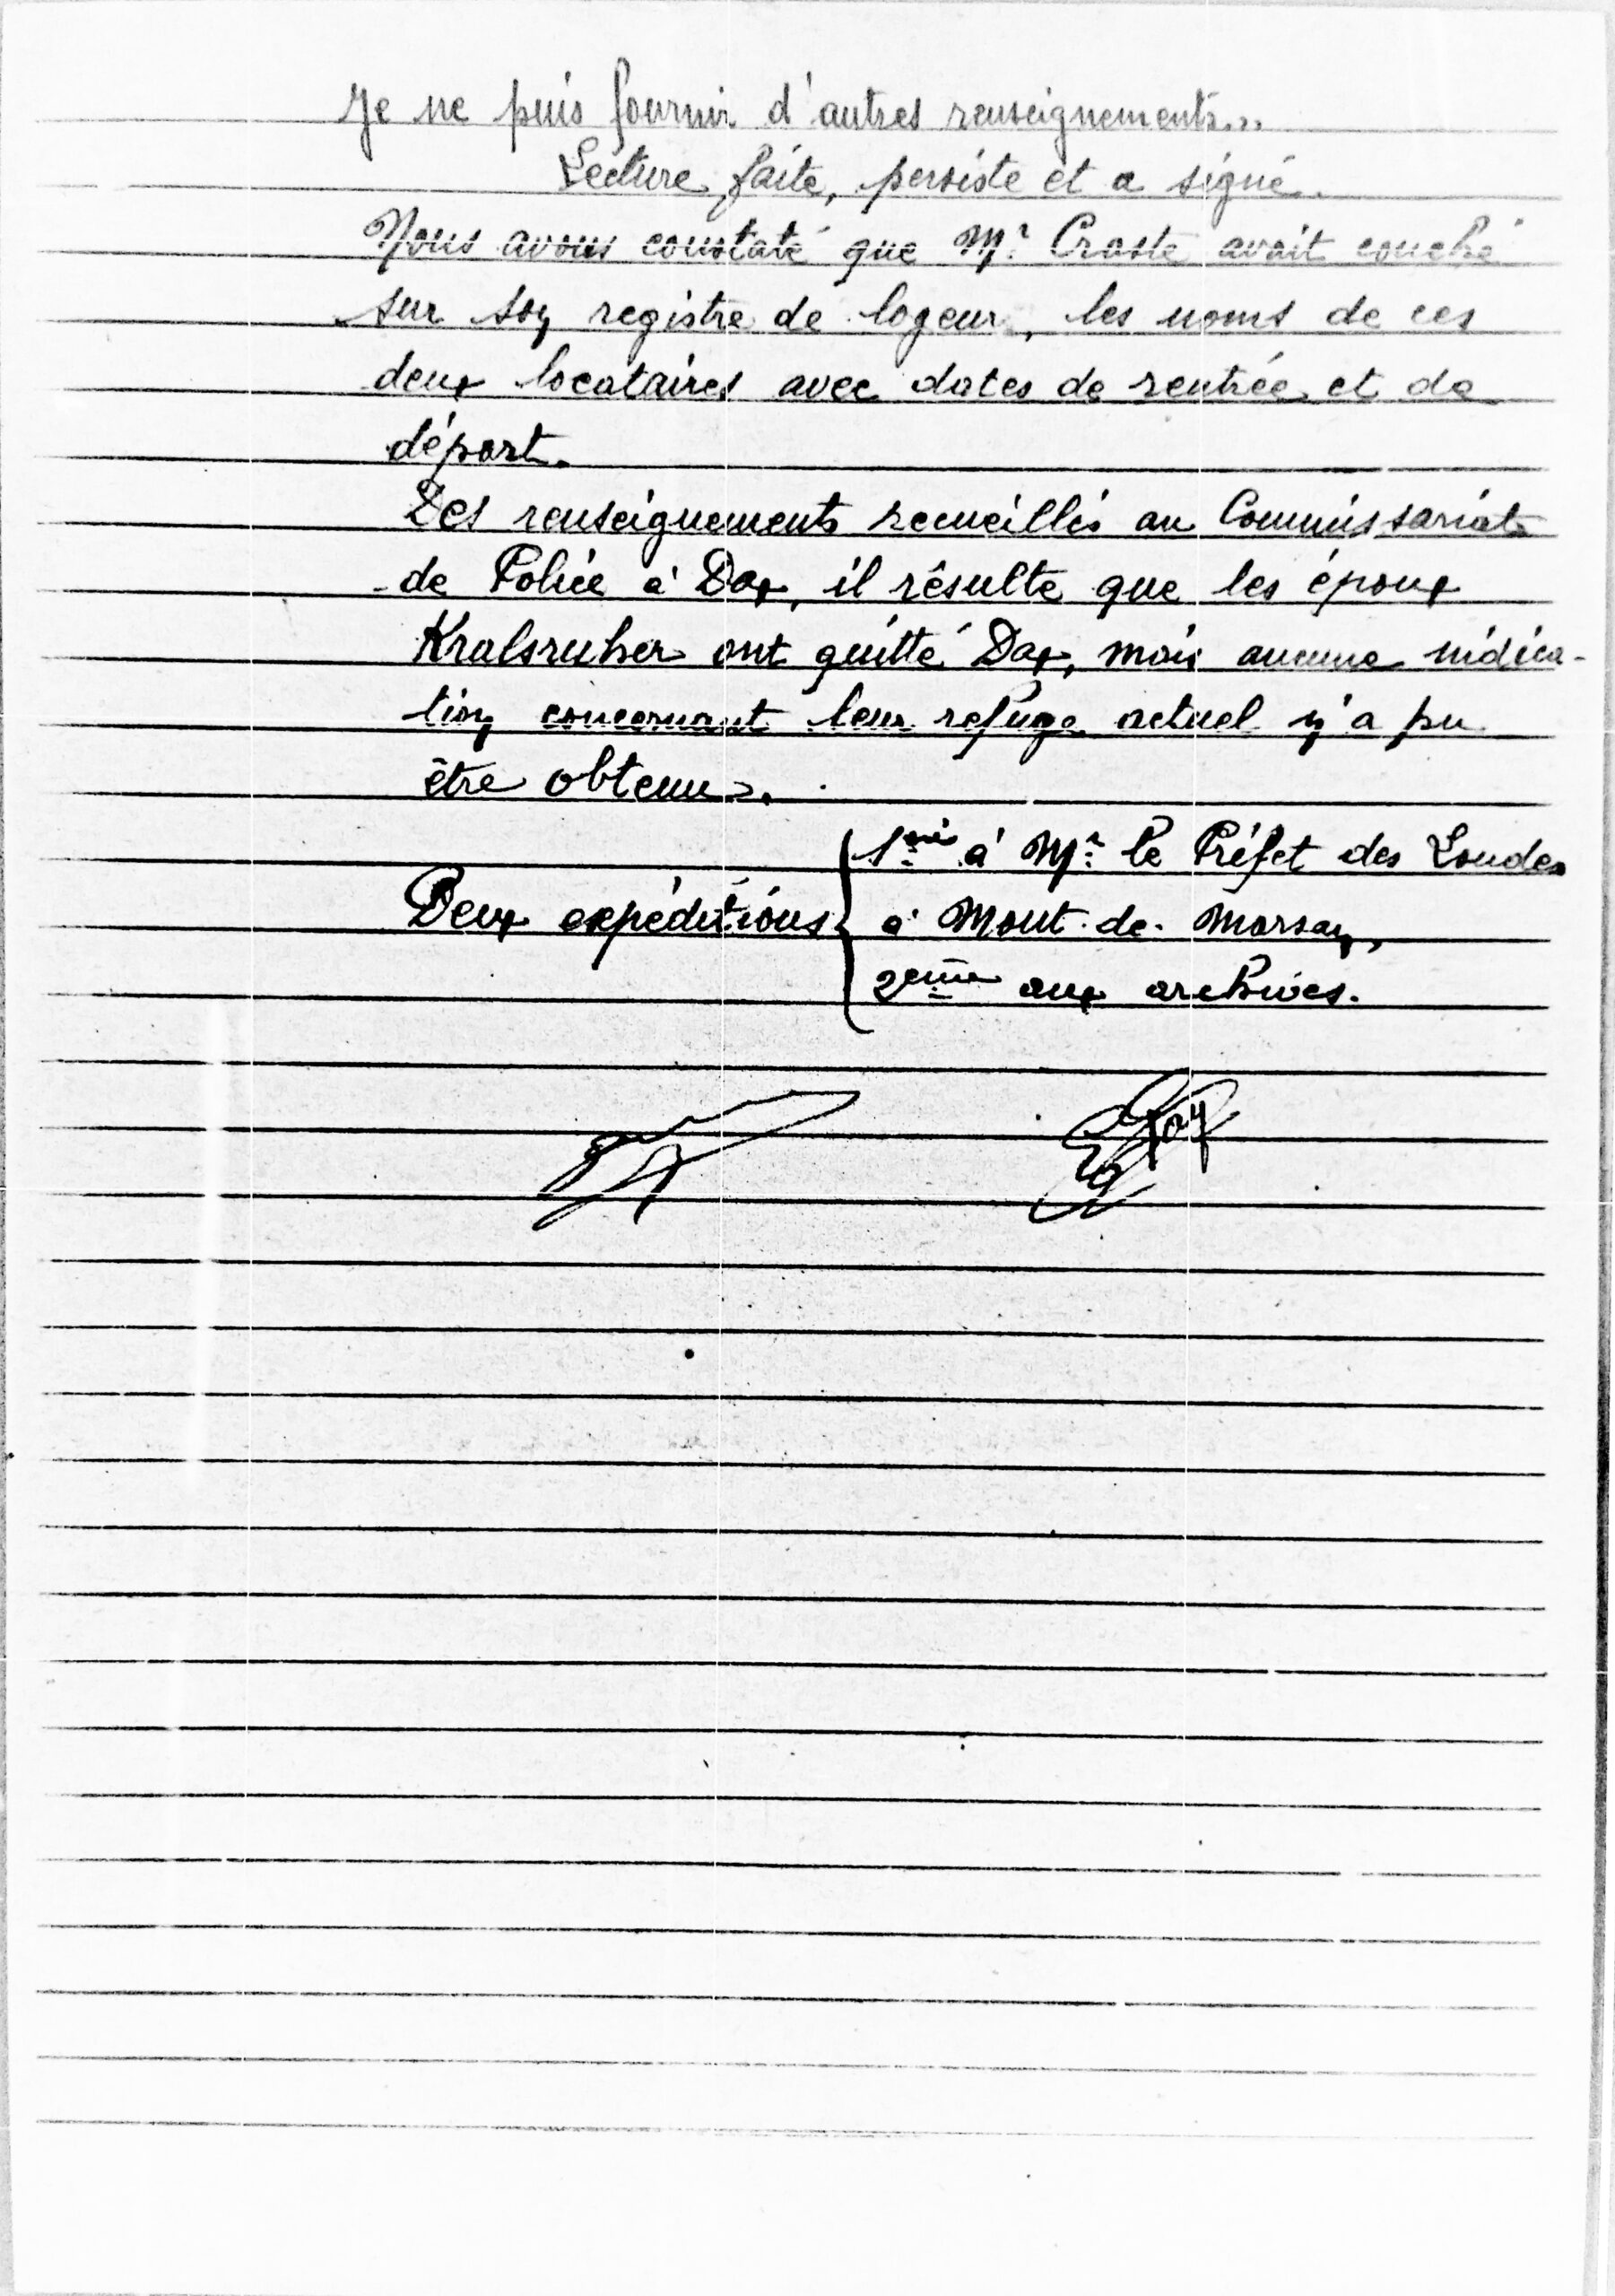 Je ne puis fournir d'autres renseignements..
Lecture faite, persiste et a signé.
Nous avons constaté que Mr. Croste avait couché
sur son registre de logeur, les noms de ces
deux locataires avec dates de rentrée et de
départ.
Des renseignements recueillis au Commissariat
de Police à Dax, il résulte que les époux
Kralsruher ont quitté Dax, mais aucune indica-
tion concernant leur refuge actuel n'a pu
être obtenue.
1ère à Mr. le Préfet des Landes
Deux expéditions à Mont-de-Marsan,
2ème aux archives.